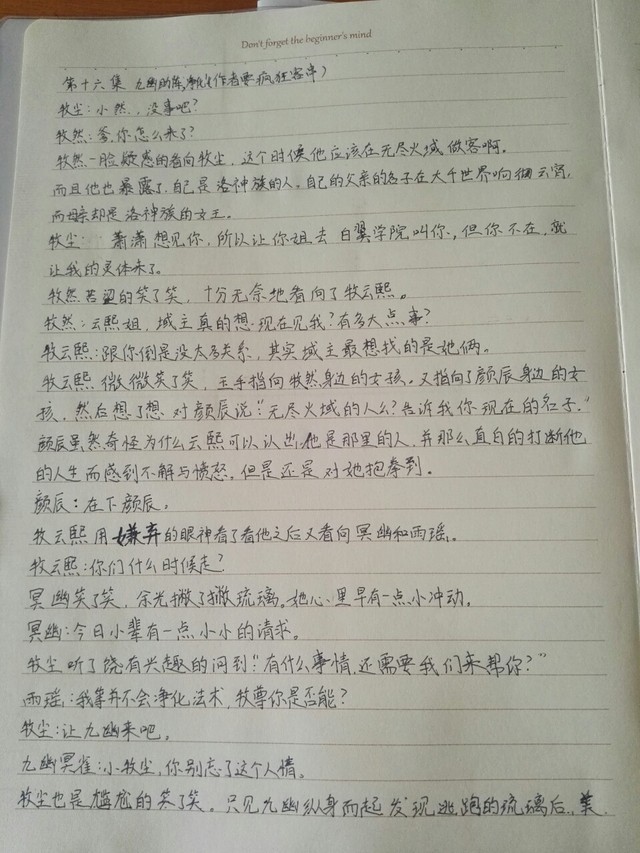 Don't forget the beginner's mind
第十六集 九幽助阵,净化(作者要疯狂客串)
牧尘:小然..没事吧?
牧然:爹,你怎么来了?
牧然一脸疑惑的看向牧尘,这个时候他应该在无尽火域做客啊。
而且他也暴露了,自己是洛神族的人。自己的父亲的名子在大千世界响彻云宵,
而母亲却是洛神族的女王。
牧尘: 萧潇想见你,所以让你姐去白翼学院叫你,但你不在,就
让我的灵体来了。
牧然苦涩的笑了笑,十分无奈地看向了牧云熙。
牧然:云熙姐,域主真的想现在见我?有多大点事?
牧云熙:跟你倒是没太多关系,其实域主最想找的是她俩。
牧云熙微微笑了笑,玉手指向牧然身边的女孩。又指向了颜辰身边的女
孩,然后想了想,对颜辰说"无尽火域的人么?告诉我你现在的名子。"
颜辰虽然奇怪为什么云熙可以认出他是那里的人,并那么直白的打断他
的人生而感到不解与愤怒,但是还是对她抱拳到。
颜辰:在下颜辰,
牧云熙用嫌弃的眼神看了看他之后又看向冥幽和雨瑶。
牧云熙:你们什么时候走?
冥幽笑了笑,余光撇了撇琉璃。她心里早有一点小冲动。
冥幽:今日小辈有一点小小的请求。
牧尘听了饶有兴趣的问到"有什么事情,还需要我们来帮你?"
雨瑶:我等并不会净化法术,牧尊你是否能?
牧尘:让九幽来吧。
九幽冥雀:小牧尘,你别忘了这个人情。
牧尘也是尴尬的笑了笑。只见九幽纵身而起发现逃跑的琉璃后,美